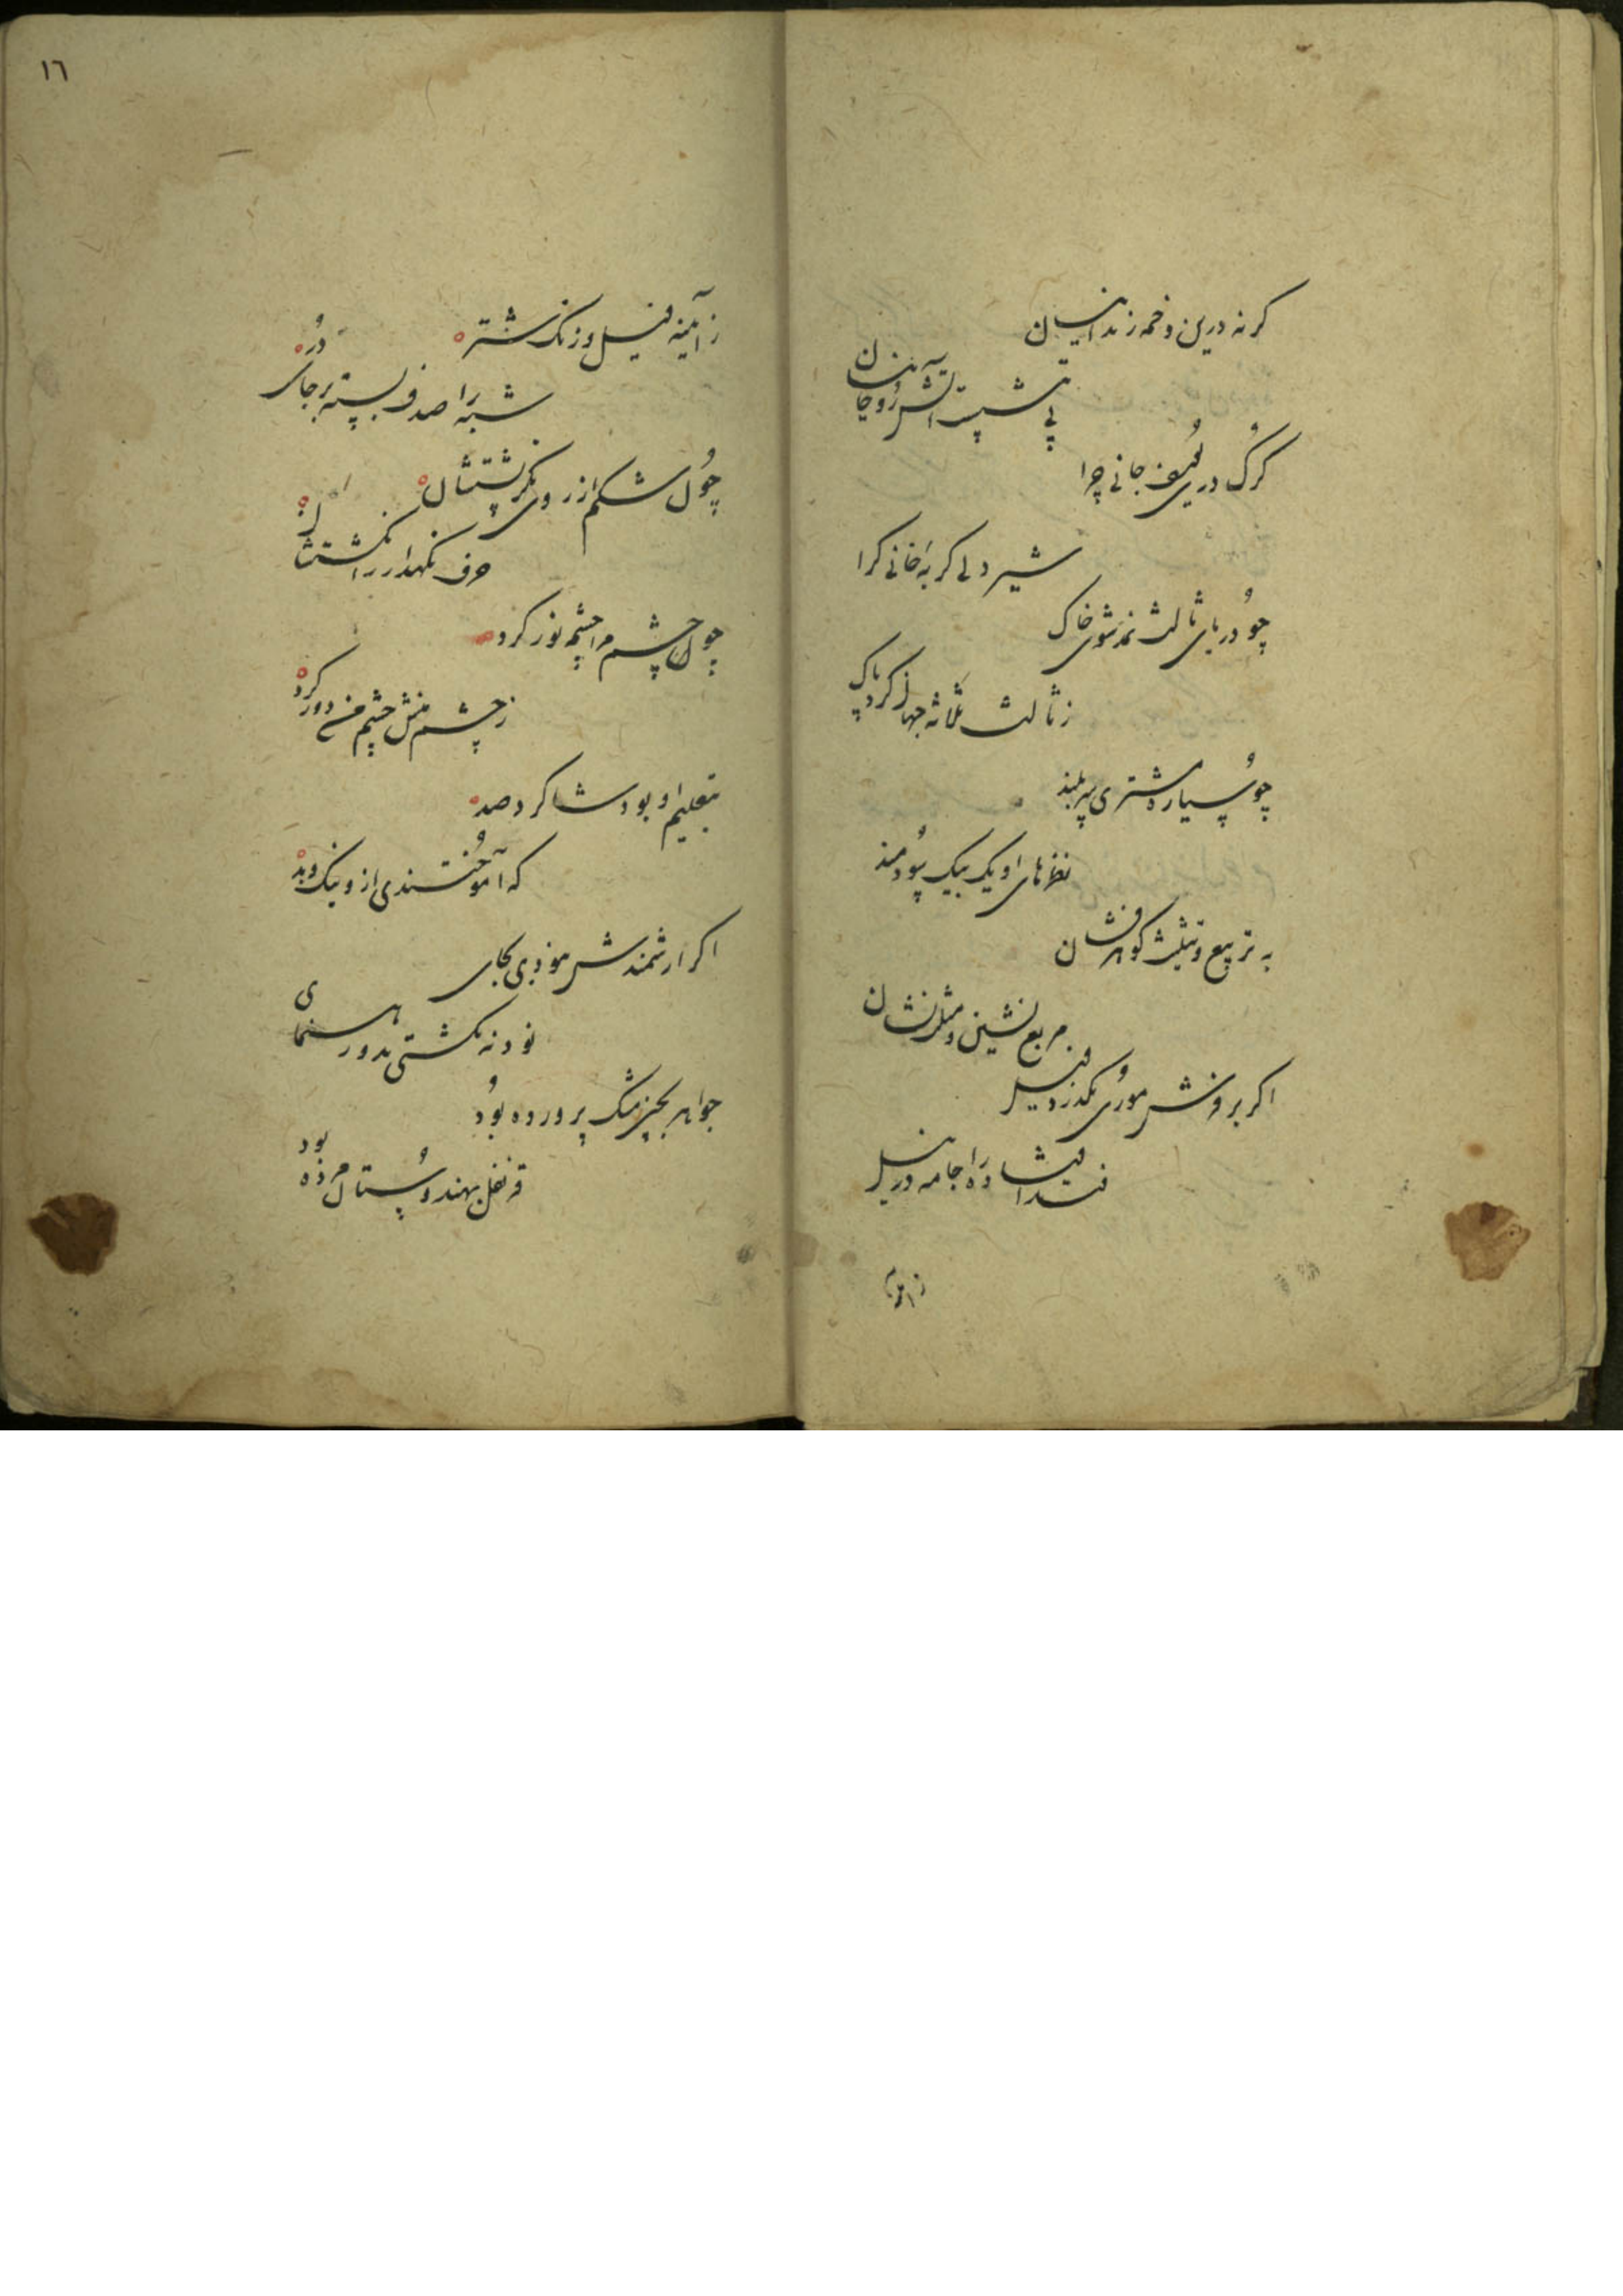 کر نه درین دخمه زندانیان
بی تبشست آتش روحانیان
کرک دری یوسف جانی چرا
شیر دلی کربه خانی کرا
چو در پای ثالث نمد شوی خاک
ز ثالث ثلاثه جهان کرد پاک
چو سیاره مشتری سر بلند
نظرهای او یک بیک سودمند
به تربیع و تثلیث کوهر فشان
مربع نشین و مثلث نشان
اکر بر فرش موری بکذرد فیل
فتد افتاده را جامه در نیل
ز آیینه
١٦
ز آیینه فیل و زنک شتر
شبه را صدف بسته بر جای در
چون شکم از روی بکن پشتشان
حرف نکهدار ز انکشتشان
چون چشم مرا چشمه نور کرد
ز چشم منش چشم من دور کرد
بتعلیم او بود شاکرد صد
که آموختندی ازو نیک و بد
اکر ارشمندش نبودی بجای
نبود نکشتی بدو رهنمای
جواهر بچین مشک پرورده بود
قرنفل بهندوستان مرده بود